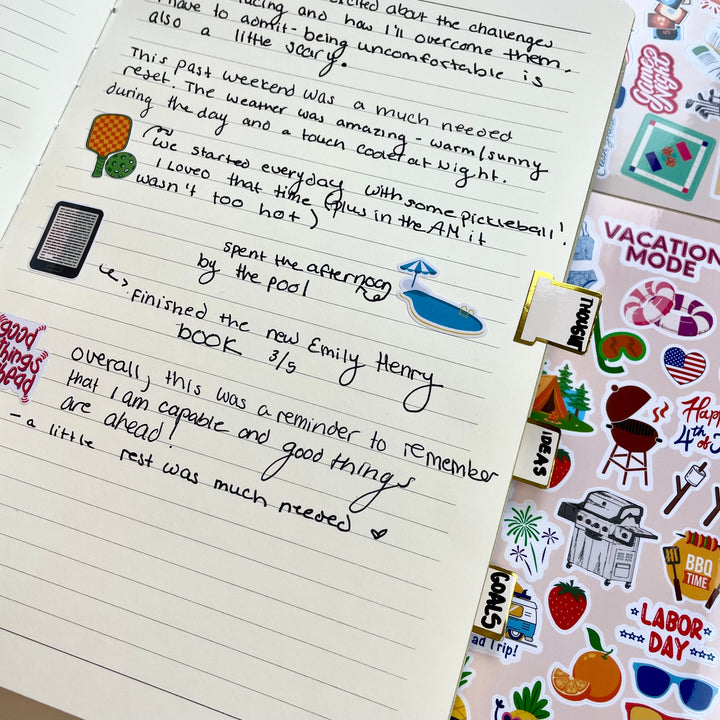 excited about the challenges
facing and how I'll overcome them.
I have to admit - being uncomfortable is
also a little scary.
This past weekend was a much needed
reset. The weather was amazing - warm/sunny
during the day and a touch cooler at night.
We started everyday with some pickleball!
I Loved that time (plus in the AM it
wasn't too hot)
spent the afternoon
by the pool
Finished the new Emily Henry
BOOK 3/5
Overall, this was a reminder to remember
that I am capable and good things
are ahead!
- a little rest was much needed
good
things
ahead
THOUGHT
IDEAS
GOALS
Game
Night
VACATION
MODE
4th
BBQ
TIME
LABOR
DAY
ad Trip!